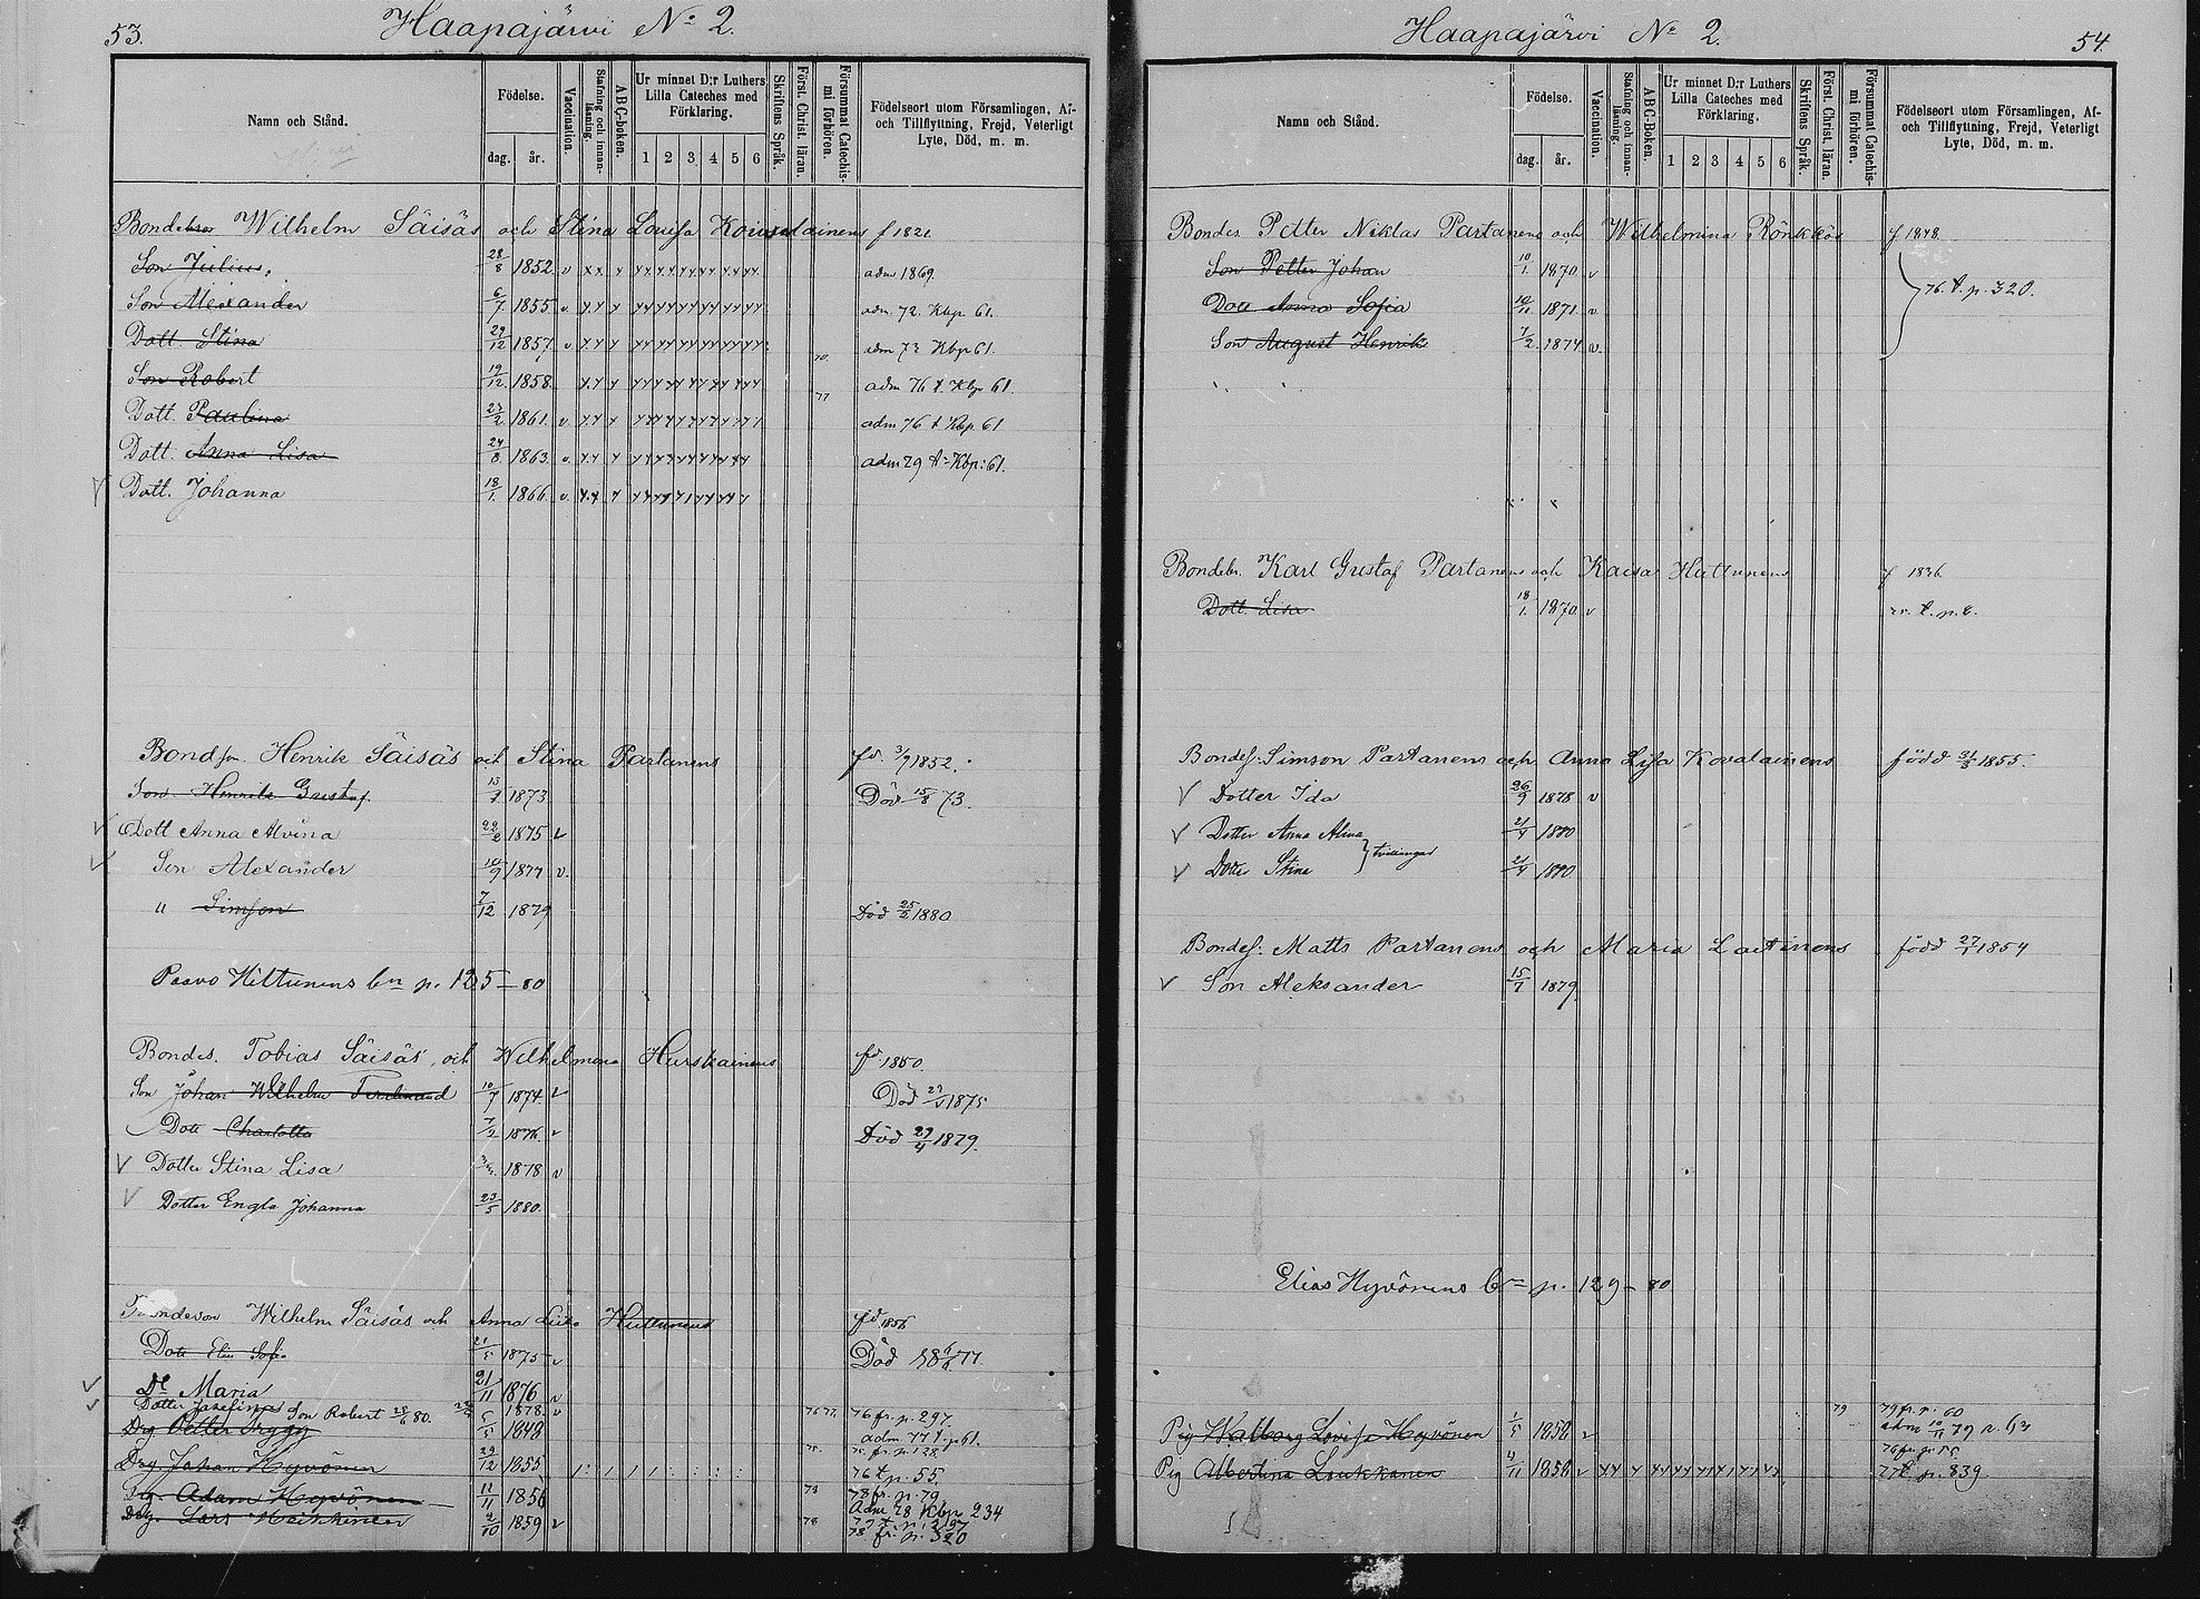 53.
Haapajärvi No 2.
Namn och Stånd.
Födelse.
dag.
år.
Vaccination.
Stafning och innan-läsning.
ABC-boken.
Ur minnet D:r Luthers Lilla Cateches med Förklaring.
1 2 3 4 5 6
Skriftens Språk.
Först. Christ. läran.
Försummat Catechis-mi förhören.
Födelseort utom Församlingen, Af- och Tillflyttning, Frejd, Veterligt Lyte, Död, m. m.
Wilhelm Säisäs och Stina Lovisa f 1821.
Son Julius. 28/8 1852 v adm 1869.
Son Alexander 6/7 1855 v. adm. 72. Kbp. 61.
Dott. Stina 29/12 1857 v adm 73 Kbp 61.
Son Robert 19/12 1858. 70. adm 76 t. Kbp 61.
Dott. Paulina 23/2 1861. v. 77 adm 76 t Kbp. 61
Dott. Anna Lisa 24/8 1863. v. adm 79 t. Kbp: 61.
Dott. Johanna 18/1. 1866. v.
Bondson. Henrik Säisäs och Stina Partanens fd. 3/9 1852.
Son Henrik Gustaf. 1873. Död 15/8 73.
Dott Anna Alvina 22/2 1875 v
Son Alexander 1877 v.
" Simson 7/12 1879 Död 25/2 1880
Paavo Hiltunens bn p. 125–80
Bondes. Tobias Säisäs och Wilhelmina Hurskainens fd. 1850.
Son Johan Wilhelm Ferdinand 10/7 1874. v Död 1875
Dott Charlotta 1876 v Död 29/4 1879.
Dotter Stina Lisa 1878 v
Dotter Engla Johanna 23/5 1880.
Wilhelm Säisäs och Anna Lisa Huttunens fd 1856
Dott Elin Sofia 21/5 1875 v Död 77.
Dr Maria 21/11 1876 v
Dotter Josefina Son Robert 28/6 80. 1878. v
Drg Petter Aryyy 5/5 1848 76 77. 76 fr. p. 297. adm. 77 t. p 61.
Drg. Johan Hyvönen 29/12 1855 75. 75. fr. p. 128. 76 t p. 55
Drg. Adam Hyvönen 11/11 1856 78 78 fr. p. 79 Adm 78 Kbp 234
Drg. Lars Heikkinen 2/10 1859 v 78 78 fr. p. 320
54.
Haapajärvi No 2.
Namn och Stånd.
Födelse.
dag.
år.
Vaccination.
Stafning och innan-läsning.
ABC-Boken.
Ur minnet D:r Luthers Lilla Cateches med Förklaring.
1 2 3 4 5 6
Skriftens Språk.
Först. Christ. läran.
Försummat Catechis-mi förhören.
Födelseort utom Församlingen, Af- och Tillflyttning, Frejd, Veterligt Lyte, Död, m. m.
Bondes. Petter Niklas Partanens och Wilhelmina Rönkkös f 1848.
Son Petter Johan 10/1. 1870. v
Dott Anna Sofia 10/11 1871. v 76. t. p. 320.
Son August Henrik 7/2 1874 v.
Bondebr. Karl Gustaf Partanens och Kaisa Huttunens f 1836.
Dott. Lisa 18/1. 1870 v t. p. 8.
Bondes. Simson Partanens och Anna Lisa Kovalainens född 1855.
Dotter Ida 26/9 1878 v
Dotter Anna Alina 21/4 1880
tvillingar
Dotter Stina 21/4 1880.
Bondes. Matts Partanens och Maria Laitinens född 27/1 1854
Son Aleksander 15/7 1879.
Elias Hyvönens bn p. 129–80
Pig Walborg Lovisa Hyvönen 1/5 1858 v 79 79 fr. p. 60 adm 79 p. 63
Pig Albertina Laukkanen 4/11 1858 v 76 fr. p. 55 77 t p. 839